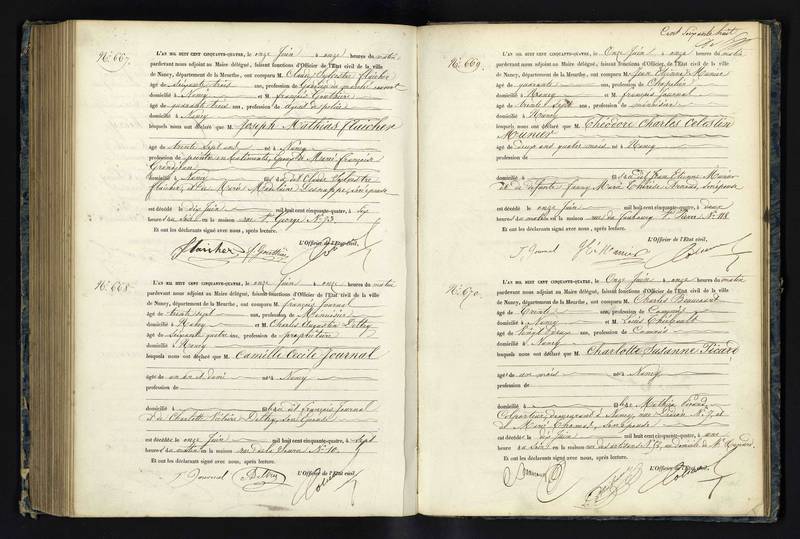 N.° 667.
L'AN MIL HUIT CENT CINQUANTE-QUATRE, le onze Juin à onze heures du matin
pardevant nous adjoint au Maire délégué, faisant fonctions d'Officier de l'Etat civil de la ville
de Nancy, département de la Meurthe, ont comparu M. Claude Sylvestre Flaicher
âgé de soixante trois ans, profession de
domicilié à Nancy et M. françois Gauthier
âgé de quarante trois ans, profession de agent de police
domicilié à Nancy
lesquels nous ont déclaré que M. Joseph Mathias flaicher
âgé de trente sept ans né à Nancy
profession de peintre en batiments, époux de Marie françoise
domicilié à Nancy fils de Claude Sylvestre
flaicher, et de Marie Madelaine
est décédé le dix Juin mil huit cent cinquante-quatre, à six
heures du soir en la maison rue St George N.° 93.
Et ont les déclarants signé avec nous, après lecture.
L'Officier de l'Etat civil,
flaicher Gauthier
N.° 668.
L'AN MIL HUIT CENT CINQUANTE-QUATRE, le onze Juin à onze heures du matin
pardevant nous adjoint au Maire délégué, faisant fonctions d'Officier de l'Etat civil de la ville
de Nancy, département de la Meurthe, ont comparu M. françois Journal
âgé de trente sept ans, profession de Menuisier
domicilié à Nancy et M. Charles Augustin
âgé de soixante quatre ans, profession de propriétaire
domicilié à Nancy
lesquels nous ont déclaré que M. Camille Cécile Journal
âgé de un an et demi né à Nancy
profession de
domicilié à fille du dit françois Journal
et de Charlotte Victoire son épouse
est décédé le onze Juin mil huit cent cinquante-quatre, à sept
heures du matin en la maison rue N.° 10.
Et ont les déclarants signé avec nous, après lecture.
L'Officier de l'Etat civil,
f. Journal
Cent soixante huit
N.° 669.
L'AN MIL HUIT CENT CINQUANTE-QUATRE, le Onze Juin à onze heures du matin
pardevant nous adjoint au Maire délégué, faisant fonctions d'Officier de l'Etat civil de la ville
de Nancy, département de la Meurthe, ont comparu M. Jean Etienne Munier
âgé de quarante ans, profession de Chapelier
domicilié à Nancy et M. françois Journal
âgé de trente sept ans, profession de menuisier
domicilié à Nancy
lesquels nous ont déclaré que M. Théodore Charles Celestin
Munier
âgé de deux ans quatre mois né à Nancy
profession de
domicilié à fils du dit Jean Etienne Munier
et de défunte fanny Marie Thérèse son épouse
est décédé le onze Juin mil huit cent cinquante-quatre, à deux
heures du matin en la maison rue du faubourg St Pierre N.° 118
Et ont les déclarants signé avec nous, après lecture.
L'Officier de l'Etat civil,
f. Journal
N.° 670.
L'AN MIL HUIT CENT CINQUANTE-QUATRE, le Onze Juin à onze heures du matin
pardevant nous adjoint au Maire délégué, faisant fonctions d'Officier de l'Etat civil de la ville
de Nancy, département de la Meurthe, ont comparu M. Charles
âgé de trente ans, profession de
domicilié à Nancy et M. Louis
âgé de vingt deux ans, profession de
domicilié à Nancy
lesquels nous ont déclaré que M. Charlotte Susanne Picard
âgé de un mois né à Nancy
profession de
domicilié à fille de Mathieu Picard,
Colporteur, demeurant à Nancy, rue N.° 7, et
de Marie son épouse
est décédé le dix Juin mil huit cent cinquante-quatre, à une
heure du soir en la maison rue des artisans N.° 8, au domicile de
Et ont les déclarants signé avec nous, après lecture.
L'Officier de l'Etat civil,